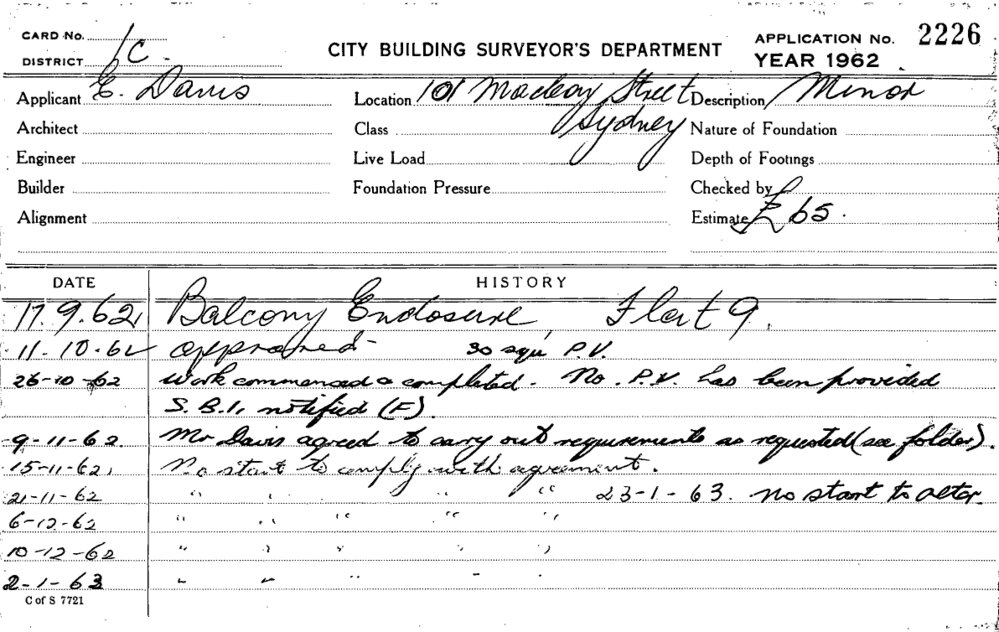 CARD No.
DISTRICT 1C.
CITY BUILDING SURVEYOR'S DEPARTMENT
APPLICATION No. 2226
YEAR 1962
Applicant E. Davis Location 101 Macleay Street Description Minor
Architect Class Sydney Nature of Foundation
Engineer Live Load Depth of Footings
Builder Foundation Pressure Checked by
Alignment Estimate £65.
DATE HISTORY
17.9.62 Balcony Enclosure Flat 9.
11-10-62 approved 30 squ P.V.
26-10-62 Work commenced & completed. No. P.V. has been provided
S.B.I. notified (F).
9-11-62 Mr Davis agreed to carry out requirements as requested (see folder).
15-11-62 No start to comply with agreement.
21-11-62 " " " " " 23-1-63. no start to alter.
6-12-62 " " " " "
10-12-62 " " " " "
2-1-63 " " " " "
C of S 7721